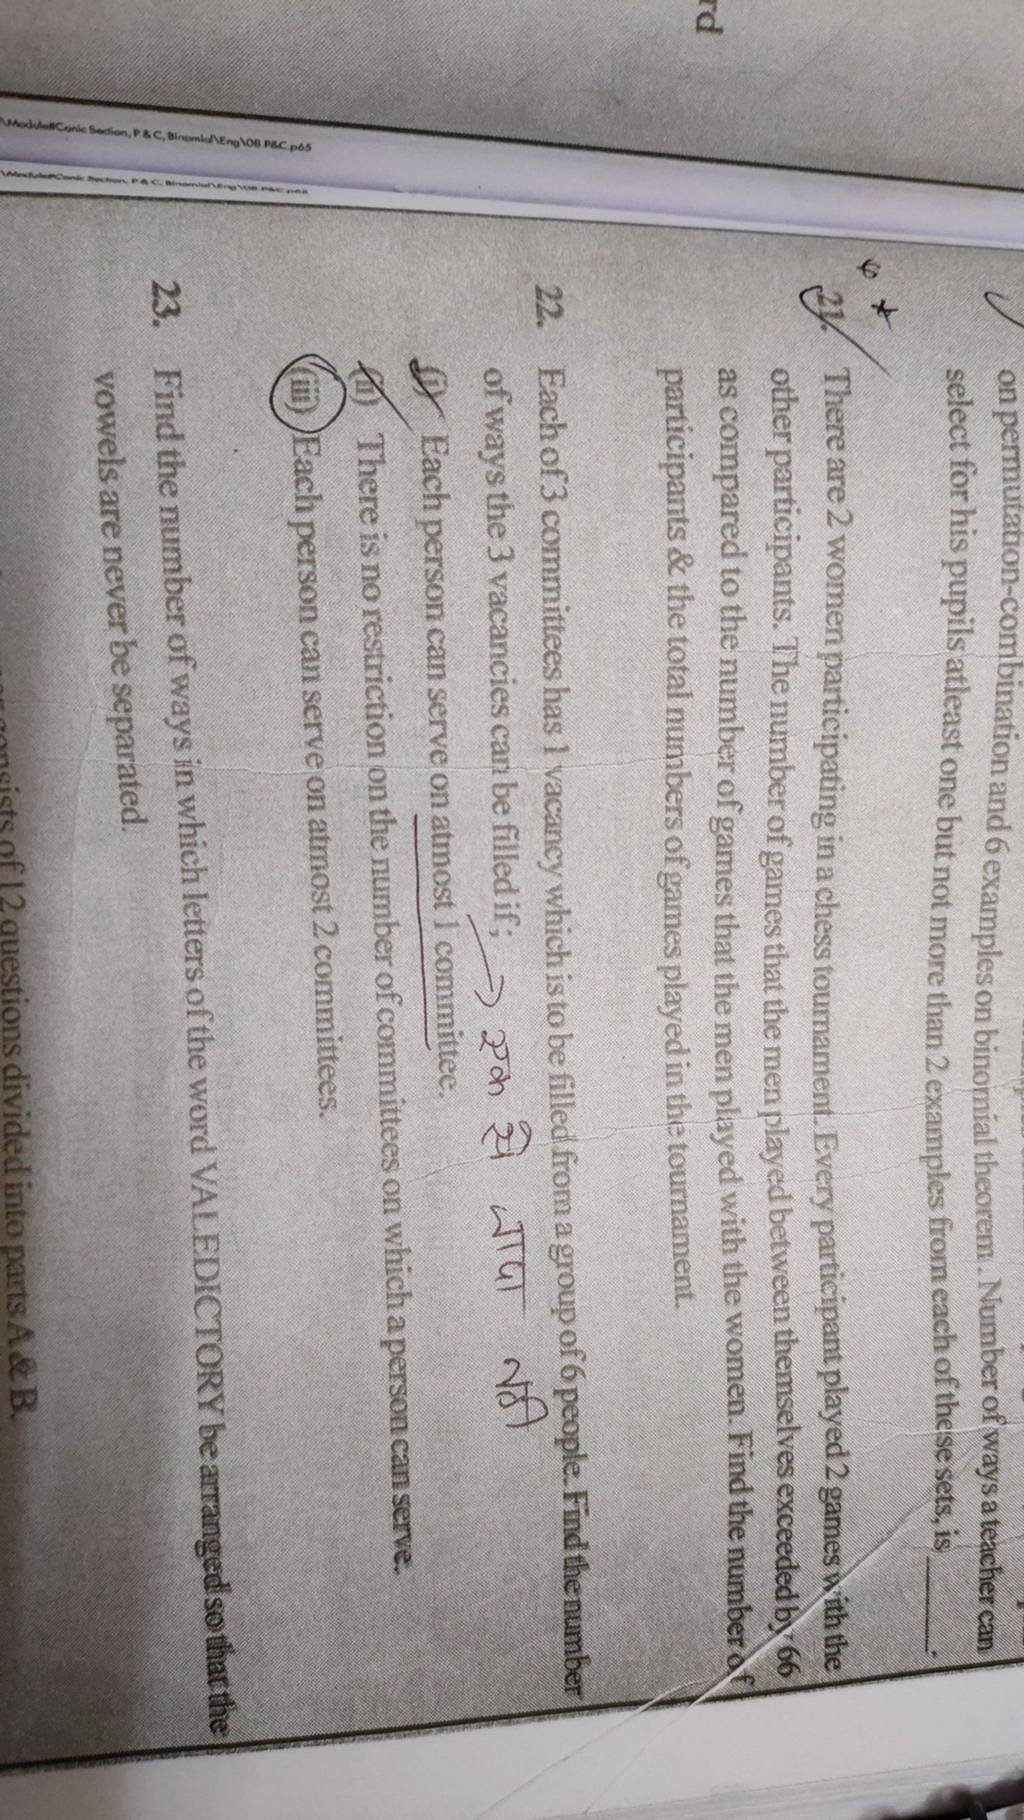 rd
\Module#Conic Section, P & C, Binomial\Eng\08 P&C.p65
\Module#Conic Section, P & C, Binomial\Eng\08 P&C.p65
on permutation-combination and 6 examples on binomial theorem. Number of ways a teacher can
select for his pupils atleast one but not more than 2 examples from each of these sets, is ______.
21. There are 2 women participating in a chess tournament. Every participant played 2 games with the
other participants. The number of games that the men played between themselves exceeded by 66
as compared to the number of games that the men played with the women. Find the number of
participants & the total numbers of games played in the tournament.
22. Each of 3 committees has 1 vacancy which is to be filled from a group of 6 people. Find the number
of ways the 3 vacancies can be filled if; → एक से जादा नही
(i) Each person can serve on atmost 1 committee.
(ii) There is no restriction on the number of committees on which a person can serve.
(iii) Each person can serve on atmost 2 committees.
23. Find the number of ways in which letters of the word VALEDICTORY be arranged so that the
vowels are never be separated.
consists of 12 questions divided into parts A & B.